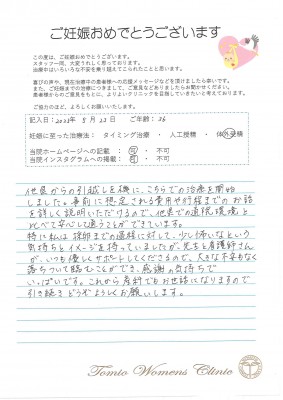 ご妊娠おめでとうございます
この度は、ご妊娠おめでとうございます。
スタッフ一同、大変うれしく思っております。
治療中はいろいろな不安を乗り越えてこられたことと思います。
喜びの声や、現在治療中の患者様への応援メッセージなどを頂けましたら幸いです。
また、ご妊娠までの治療につきまして、ご意見などありましたらお聞かせください。
患者様からのご意見をもとに、よりよいクリニックを目指していきたいと考えております。
ご協力のほど、よろしくお願いいたします。
記入日：2023年 8月 23日 ご年齢：36
妊娠に至った治療法： タイミング治療 ・ 人工授精 ・ 体外受精
当院ホームページへの記載 ： 可 ・ 不可
当院インスタグラムへの掲載 ： 可 ・ 不可
他県からの引越しを機に、こちらでの治療を開始
しました。事前に想定される費用や行程までのお話
を詳しく説明いただけるので、他県での通院環境と
比べて安心して通うことができています。
特に私は採卵までの過程に対して、少し怖いなという
気持ちとイメージを持っていましたが、先生と看護師さん
が、いつも優しくサポートしてくださるので、大きな不安もなく
落ちついて臨むことができ、感謝の気持ちで
いっぱいです。これから産科でもお世話になりますので
引き続きどうぞよろしくお願いします。
Tomio Womens Clinic